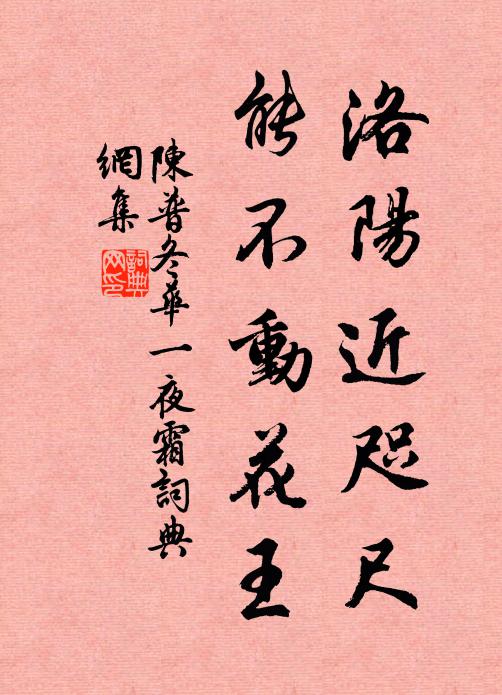 洛陽近咫尺
能不動花王
陳普冬華一夜霜詞典
網集
詞典
网印